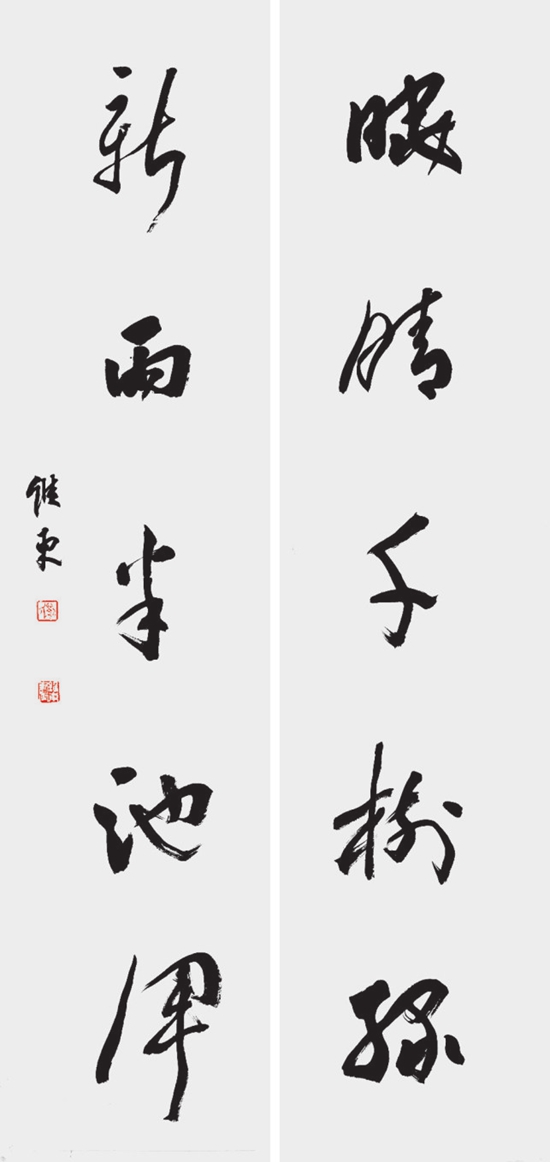 暖晴千樹綠
新雨半池渾
東